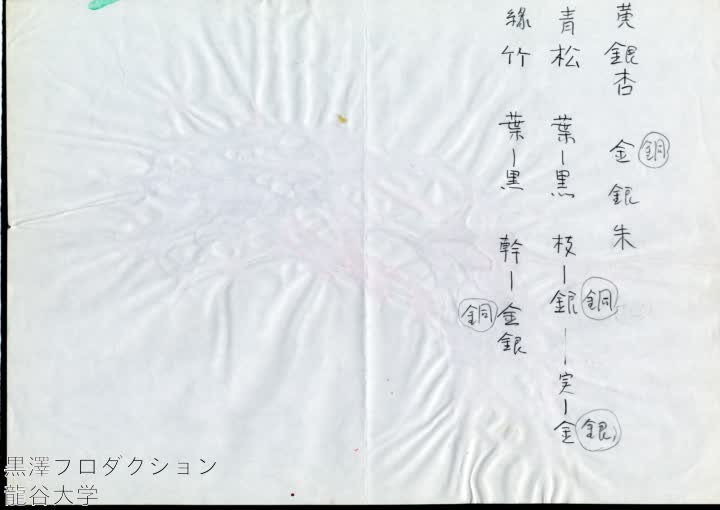 黄 銀杏 金 銅 銀 朱
青 松 葉―黒 枝―銀 銅 ―実―金 銀
緑 竹 葉―黒 幹―金 銅 銀
黒澤フロダクション
龍谷大学